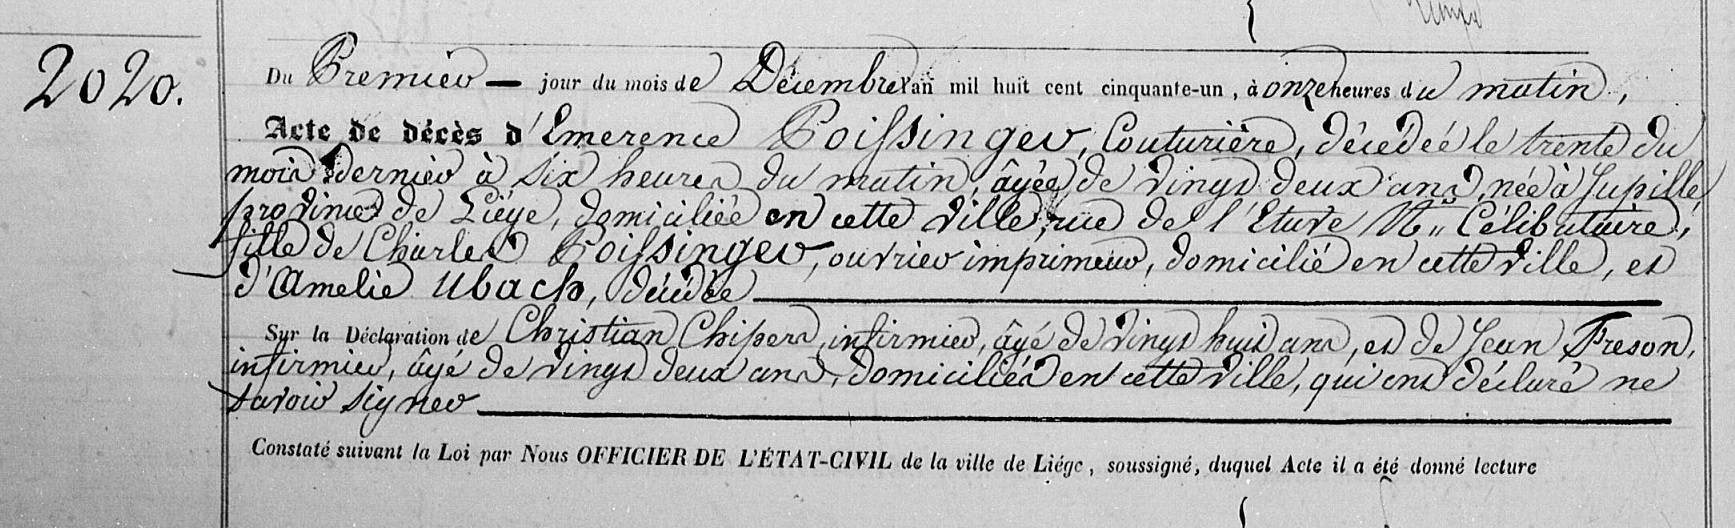 2020.
Du Premier — jour du mois de Décembre l'an mil huit cent cinquante-un, à onze heures du matin,
Acte de décès d'Emerence Poissinger, Couturière, décédée le trente du
mois dernier à six heures du matin, âgée de vingt deux ans, née à Jupille,
province de Liége, domiciliée en cette ville, rue de l'Etuve N° " Célibataire,
fille de Charles Poissinger, ouvrier imprimeur, domicilié en cette ville, et
d'Amelie Ubach, décédée
Sur la Déclaration de Christian Chipers, infirmier, âgé de vingt huit ans, et de Jean Freson,
infirmier, âgé de vingt deux ans, domiciliés en cette ville, qui ont déclaré ne
savoir signer
Constaté suivant la Loi par Nous OFFICIER DE L'ÉTAT-CIVIL de la ville de Liége, soussigné, duquel Acte il a été donné lecture